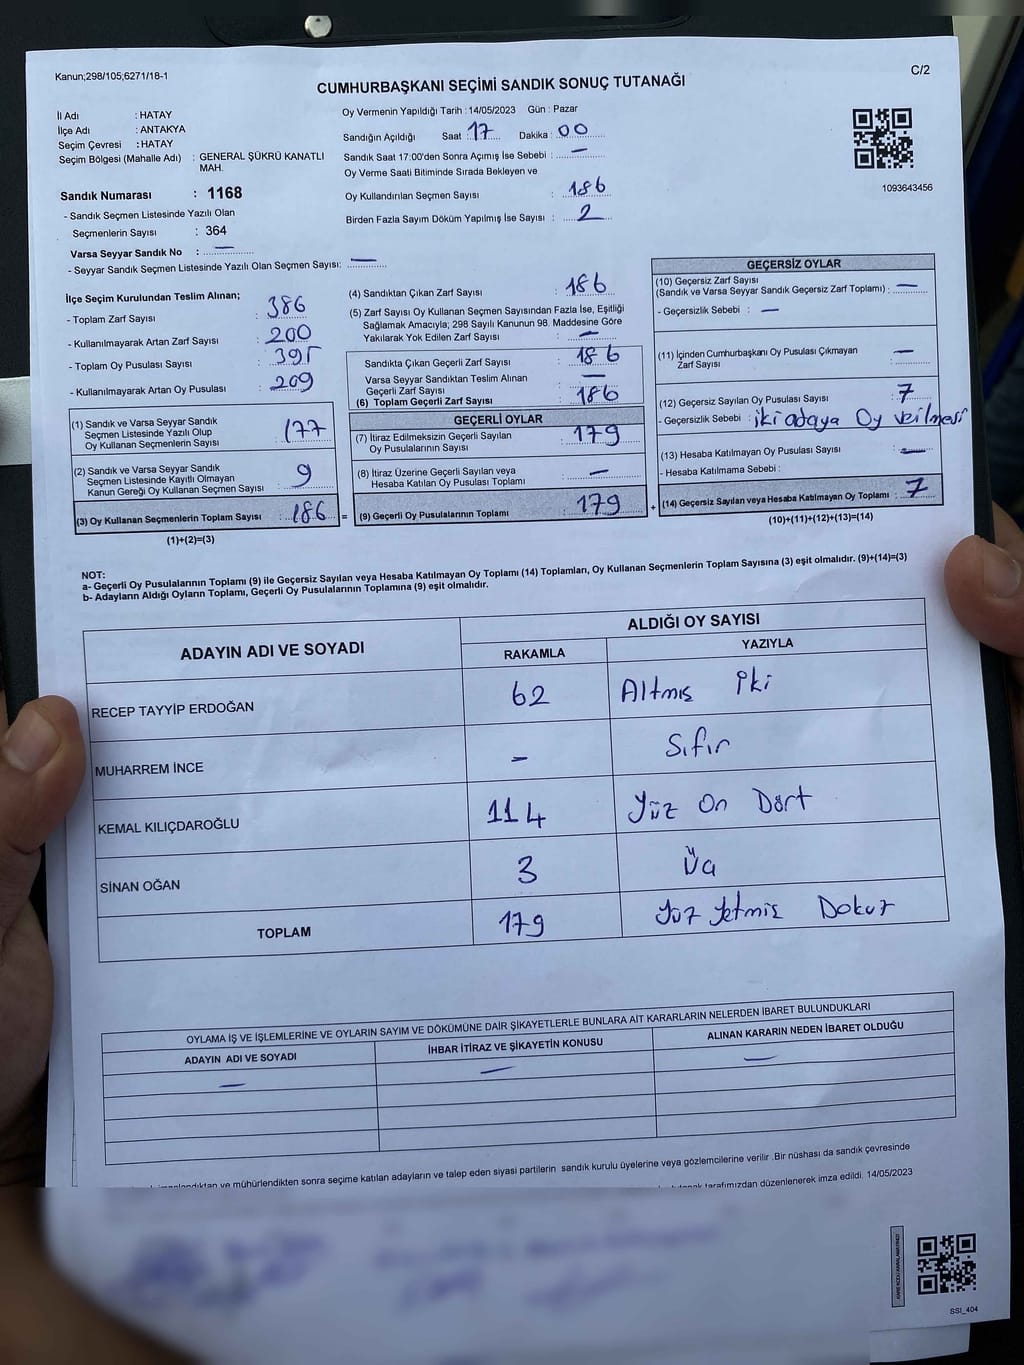 Kanun;298/105;6271/18-1
C/2
CUMHURBAŞKANI SEÇİMİ SANDIK SONUÇ TUTANAĞI
İl Adı : HATAY
İlçe Adı : ANTAKYA
Seçim Çevresi : HATAY
Seçim Bölgesi (Mahalle Adı) : GENERAL ŞÜKRÜ KANATLI
MAH.
Sandık Numarası : 1168
- Sandık Seçmen Listesinde Yazılı Olan
Seçmenlerin Sayısı : 364
Varsa Seyyar Sandık No : —
- Seyyar Sandık Seçmen Listesinde Yazılı Olan Seçmen Sayısı: —
Oy Vermenin Yapıldığı Tarih : 14/05/2023 Gün : Pazar
Sandığın Açıldığı Saat : 17 Dakika : 00
Sandık Saat 17:00'den Sonra Açımış İse Sebebi : —
Oy Verme Saati Bitiminde Sırada Bekleyen ve
Oy Kullandırılan Seçmen Sayısı : 186
Birden Fazla Sayım Döküm Yapılmış İse Sayısı : 2
1093643456
İlçe Seçim Kurulundan Teslim Alınan;
- Toplam Zarf Sayısı : 386
- Kullanılmayarak Artan Zarf Sayısı : 200
- Toplam Oy Pusulası Sayısı : 395
- Kullanılmayarak Artan Oy Pusulası : 209
(1) Sandık ve Varsa Seyyar Sandık
Seçmen Listesinde Yazılı Olup
Oy Kullanan Seçmenlerin Sayısı : 177
(2) Sandık ve Varsa Seyyar Sandık
Seçmen Listesinde Kayıtlı Olmayan
Kanun Gereği Oy Kullanan Seçmen Sayısı : 9
(3) Oy Kullanan Seçmenlerin Toplam Sayısı : 186 =
(1)+(2)=(3)
(4) Sandıktan Çıkan Zarf Sayısı : 186
(5) Zarf Sayısı Oy Kullanan Seçmen Sayısından Fazla İse, Eşitliği
Sağlamak Amacıyla; 298 Sayılı Kanunun 98. Maddesine Göre
Yakılarak Yok Edilen Zarf Sayısı : —
Sandıkta Çıkan Geçerli Zarf Sayısı : 186
Varsa Seyyar Sandıktan Teslim Alınan
Geçerli Zarf Sayısı : —
(6) Toplam Geçerli Zarf Sayısı : 186
GEÇERLİ OYLAR
(7) İtiraz Edilmeksizin Geçerli Sayılan
Oy Pusulalarının Sayısı : 179
(8) İtiraz Üzerine Geçerli Sayılan veya
Hesaba Katılan Oy Pusulası Toplamı : —
(9) Geçerli Oy Pusulalarının Toplamı : 179 +
GEÇERSİZ OYLAR
(10) Geçersiz Zarf Sayısı
(Sandık ve Varsa Seyyar Sandık Geçersiz Zarf Toplamı) : —
- Geçersizlik Sebebi : —
(11) İçinden Cumhurbaşkanı Oy Pusulası Çıkmayan
Zarf Sayısı : —
(12) Geçersiz Sayılan Oy Pusulası Sayısı : 7
- Geçersizlik Sebebi : iki adaya Oy verilmesi
(13) Hesaba Katılmayan Oy Pusulası Sayısı : —
- Hesaba Katılmama Sebebi :
(14) Geçersiz Sayılan veya Hesaba Katılmayan Oy Toplamı : 7
(10)+(11)+(12)+(13)=(14)
NOT:
a- Geçerli Oy Pusulalarının Toplamı (9) ile Geçersiz Sayılan veya Hesaba Katılmayan Oy Toplamı (14) Toplamları, Oy Kullanan Seçmenlerin Toplam Sayısına (3) eşit olmalıdır. (9)+(14)=(3)
b- Adayların Aldığı Oyların Toplamı, Geçerli Oy Pusulalarının Toplamına (9) eşit olmalıdır.
ADAYIN ADI VE SOYADI ALDIĞI OY SAYISI
RAKAMLA YAZIYLA
RECEP TAYYİP ERDOĞAN 62 Altmış iki
MUHARREM İNCE — Sıfır
KEMAL KILIÇDAROĞLU 114 Yüz On Dört
SİNAN OĞAN 3 Üç
TOPLAM 179 Yüz Yetmiş Dokuz
OYLAMA İŞ VE İŞLEMLERİNE VE OYLARIN SAYIM VE DÖKÜMÜNE DAİR ŞİKAYETLERLE BUNLARA AİT KARARLARIN NELERDEN İBARET BULUNDUKLARI
ADAYIN ADI VE SOYADI İHBAR İTİRAZ VE ŞİKAYETİN KONUSU ALINAN KARARIN NEDEN İBARET OLDUĞU
— — —
ve mühürlendikten sonra seçime katılan adayların ve talep eden siyasi partilerin sandık kurulu üyelerine veya gözlemcilerine verilir .Bir nüshası da sandık çevresinde
tarafımızdan düzenlenerek imza edildi. 14/05/2023
SSI_404